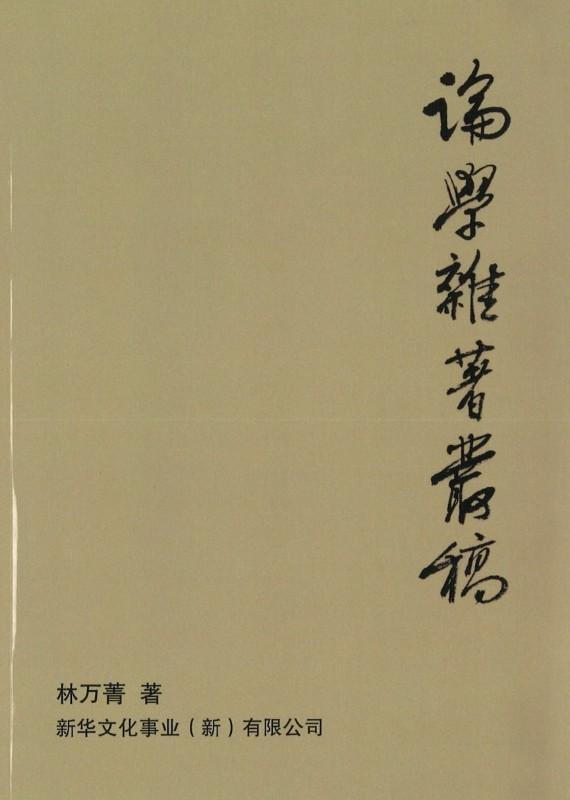 論學雜著叢稿
林万菁 著
新华文化事业（新）有限公司